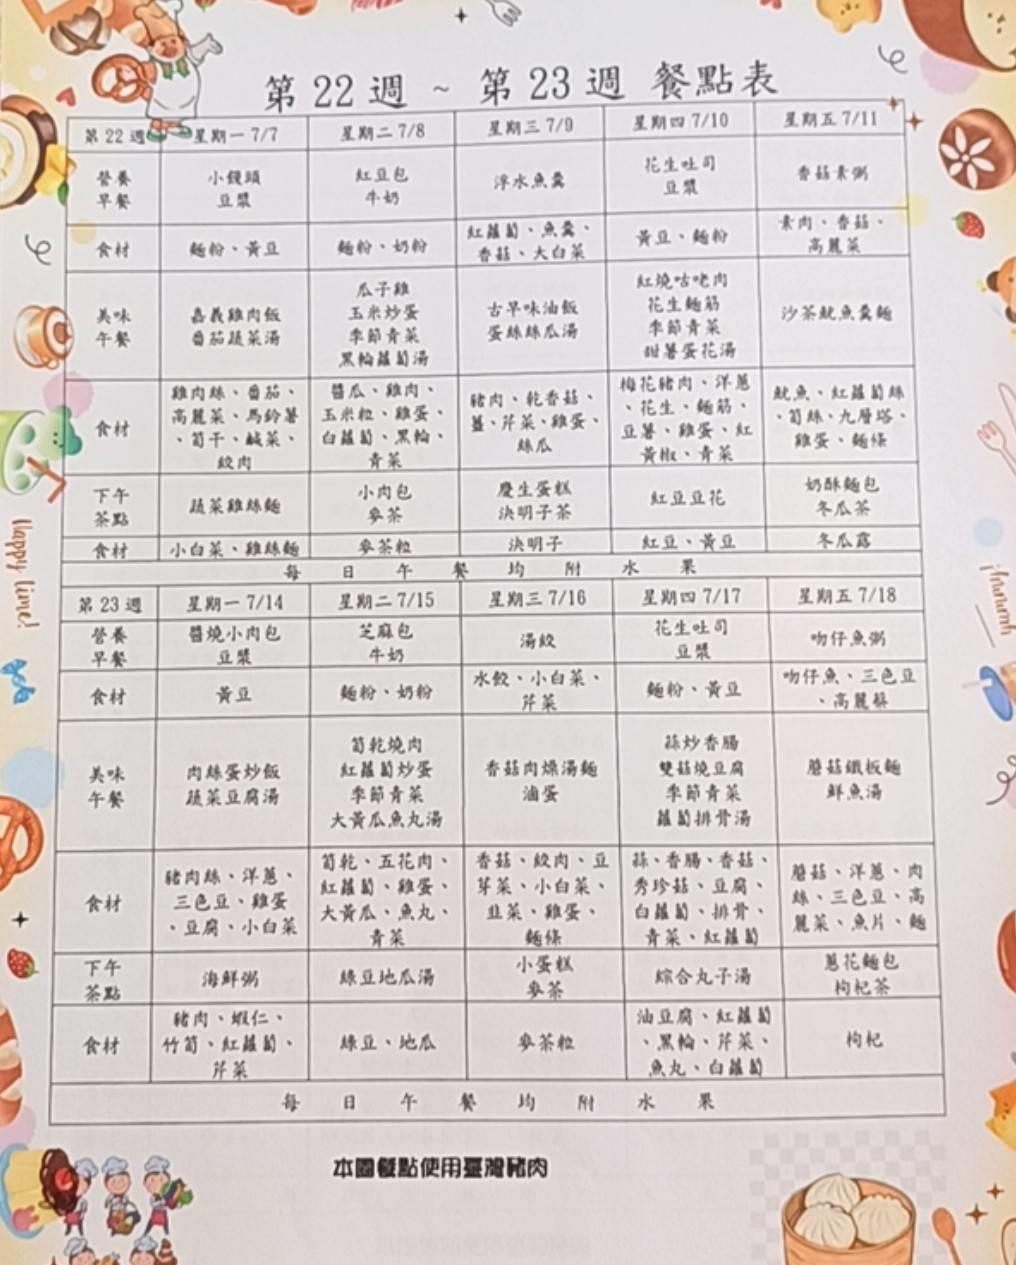 第 22 週 ~ 第 23 週 餐點表
第 22 週 星期一 7/7 星期二 7/8 星期三 7/9 星期四 7/10 星期五 7/11
營養 小饅頭 紅豆包 浮水魚羹 花生吐司 香菇素粥
早餐 豆漿 牛奶 豆漿
食材 麵粉、黃豆 麵粉、奶粉 紅蘿蔔、魚羹、 黃豆、麵粉 素肉、香菇、
香菇、大白菜 高麗菜
美味 嘉義雞肉飯 瓜子雞 古早味油飯 紅燒咕咾肉 沙茶魷魚羹麵
午餐 番茄蔬菜湯 玉米炒蛋 蛋絲絲瓜湯 花生麵筋
季節青菜 季節青菜
黑輪蘿蔔湯 甜薯蛋花湯
食材 雞肉絲、番茄、 醬瓜、雞肉、 豬肉、乾香菇、 梅花豬肉、洋蔥 魷魚、紅蘿蔔絲
高麗菜、馬鈴薯 玉米粒、雞蛋、 薑、芹菜、雞蛋、 、花生、麵筋、 、筍絲、九層塔、
、筍干、鹹菜、 白蘿蔔、黑輪、 絲瓜 豆薯、雞蛋、紅 雞蛋、麵條
絞肉 青菜 黃椒、青菜
下午 蔬菜雞絲麵 小肉包 慶生蛋糕 紅豆豆花 奶酥麵包
茶點 麥茶 決明子茶 冬瓜茶
食材 小白菜、雞絲麵 麥茶粒 決明子 紅豆、黃豆 冬瓜露
每 日 午 餐 均 附 水 果
第 23 週 星期一 7/14 星期二 7/15 星期三 7/16 星期四 7/17 星期五 7/18
營養 醬燒小肉包 芝麻包 湯餃 花生吐司 吻仔魚粥
早餐 豆漿 牛奶 豆漿
食材 黃豆 麵粉、奶粉 水餃、小白菜、 麵粉、黃豆 吻仔魚、三色豆
芹菜 、高麗菜
美味 肉絲蛋炒飯 筍乾燒肉 香菇肉燥湯麵 蒜炒香腸 蘑菇鐵板麵
午餐 蔬菜豆腐湯 紅蘿蔔炒蛋 滷蛋 雙菇燒豆腐 鮮魚湯
季節青菜 季節青菜
大黃瓜魚丸湯 蘿蔔排骨湯
食材 豬肉絲、洋蔥、 筍乾、五花肉、 香菇、絞肉、豆 蒜、香腸、香菇、 蘑菇、洋蔥、肉
三色豆、雞蛋 紅蘿蔔、雞蛋、 芽菜、小白菜、 秀珍菇、豆腐、 絲、三色豆、高
、豆腐、小白菜 大黃瓜、魚丸、 韭菜、雞蛋、 白蘿蔔、排骨、 麗菜、魚片、麵
青菜 麵條 青菜、紅蘿蔔
下午 海鮮粥 綠豆地瓜湯 小蛋糕 綜合丸子湯 蔥花麵包
茶點 麥茶 枸杞茶
食材 豬肉、蝦仁、 綠豆、地瓜 麥茶粒 油豆腐、紅蘿蔔 枸杞
竹筍、紅蘿蔔、 、黑輪、芹菜、
芹菜 魚丸、白蘿蔔
每 日 午 餐 均 附 水 果
本園餐點使用臺灣豬肉
Happy time!